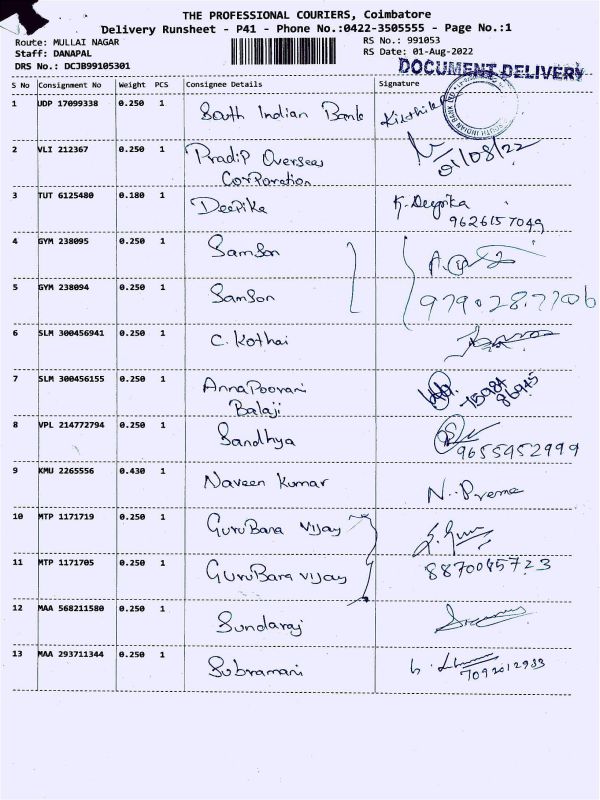 THE PROFESSIONAL COURIERS, Coimbatore
Delivery Runsheet - P41 - Phone No.:0422-3505555 - Page No.:1
Route: MULLAI NAGAR RS No.: 991053
Staff: DANAPAL RS Date: 01-Aug-2022
DRS No.: DCJB99105301 DOCUMENT DELIVERY
S No Consignment No Weight PCS Consignee Details Signature
1 UDP 17099338 0.250 1 South Indian Bank
2 VLI 212367 0.250 1 Pradip Overseas 01/08/22
Corporation
3 TUT 6125480 0.180 1 Deepika K. Deepika
9626157049
4 GYM 238095 0.250 1 Samson
5 GYM 238094 0.250 1 Samson 9790287706
6 SLM 300456941 0.250 1 C. Kothai
7 SLM 300456155 0.250 1 Annapoorani
Balaji
8 VPL 214772794 0.250 1 Sandhya
9655952999
9 KMU 2265556 0.430 1 Naveen Kumar N. Prema
10 MTP 1171719 0.250 1 GuruBara Vijay
11 MTP 1171705 0.250 1 GuruBara Vijay 8870045723
12 MAA 568211580 0.250 1 Sundaraj
13 MAA 293711344 0.250 1 Subramani
7092012933